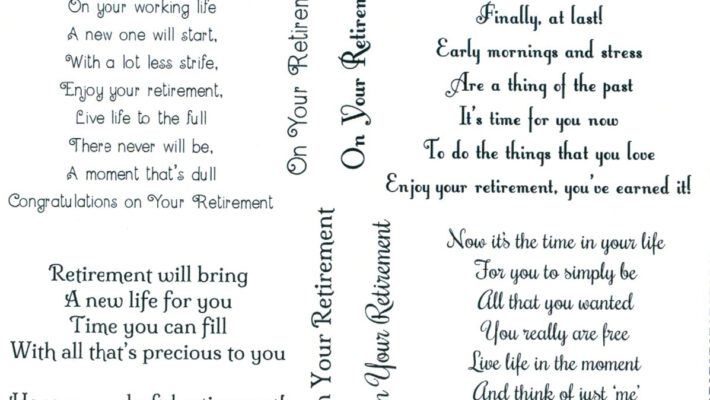 On your working life
A new one will start,
With a lot less strife,
Enjoy your retirement,
Live life to the full
There never will be,
A moment that's dull
Congratulations on Your Retirement
Retirement will bring
A new life for you
Time you can fill
With all that's precious to you
On Your
On Your
Your Retirement
Your Retirement
Finally, at last!
Early mornings and stress
Are a thing of the past
It's time for you now
To do the things that you love
Enjoy your retirement, you've earned it!
Now it's the time in your life
For you to simply be
All that you wanted
You really are free
Live life in the moment
And think of just 'me'